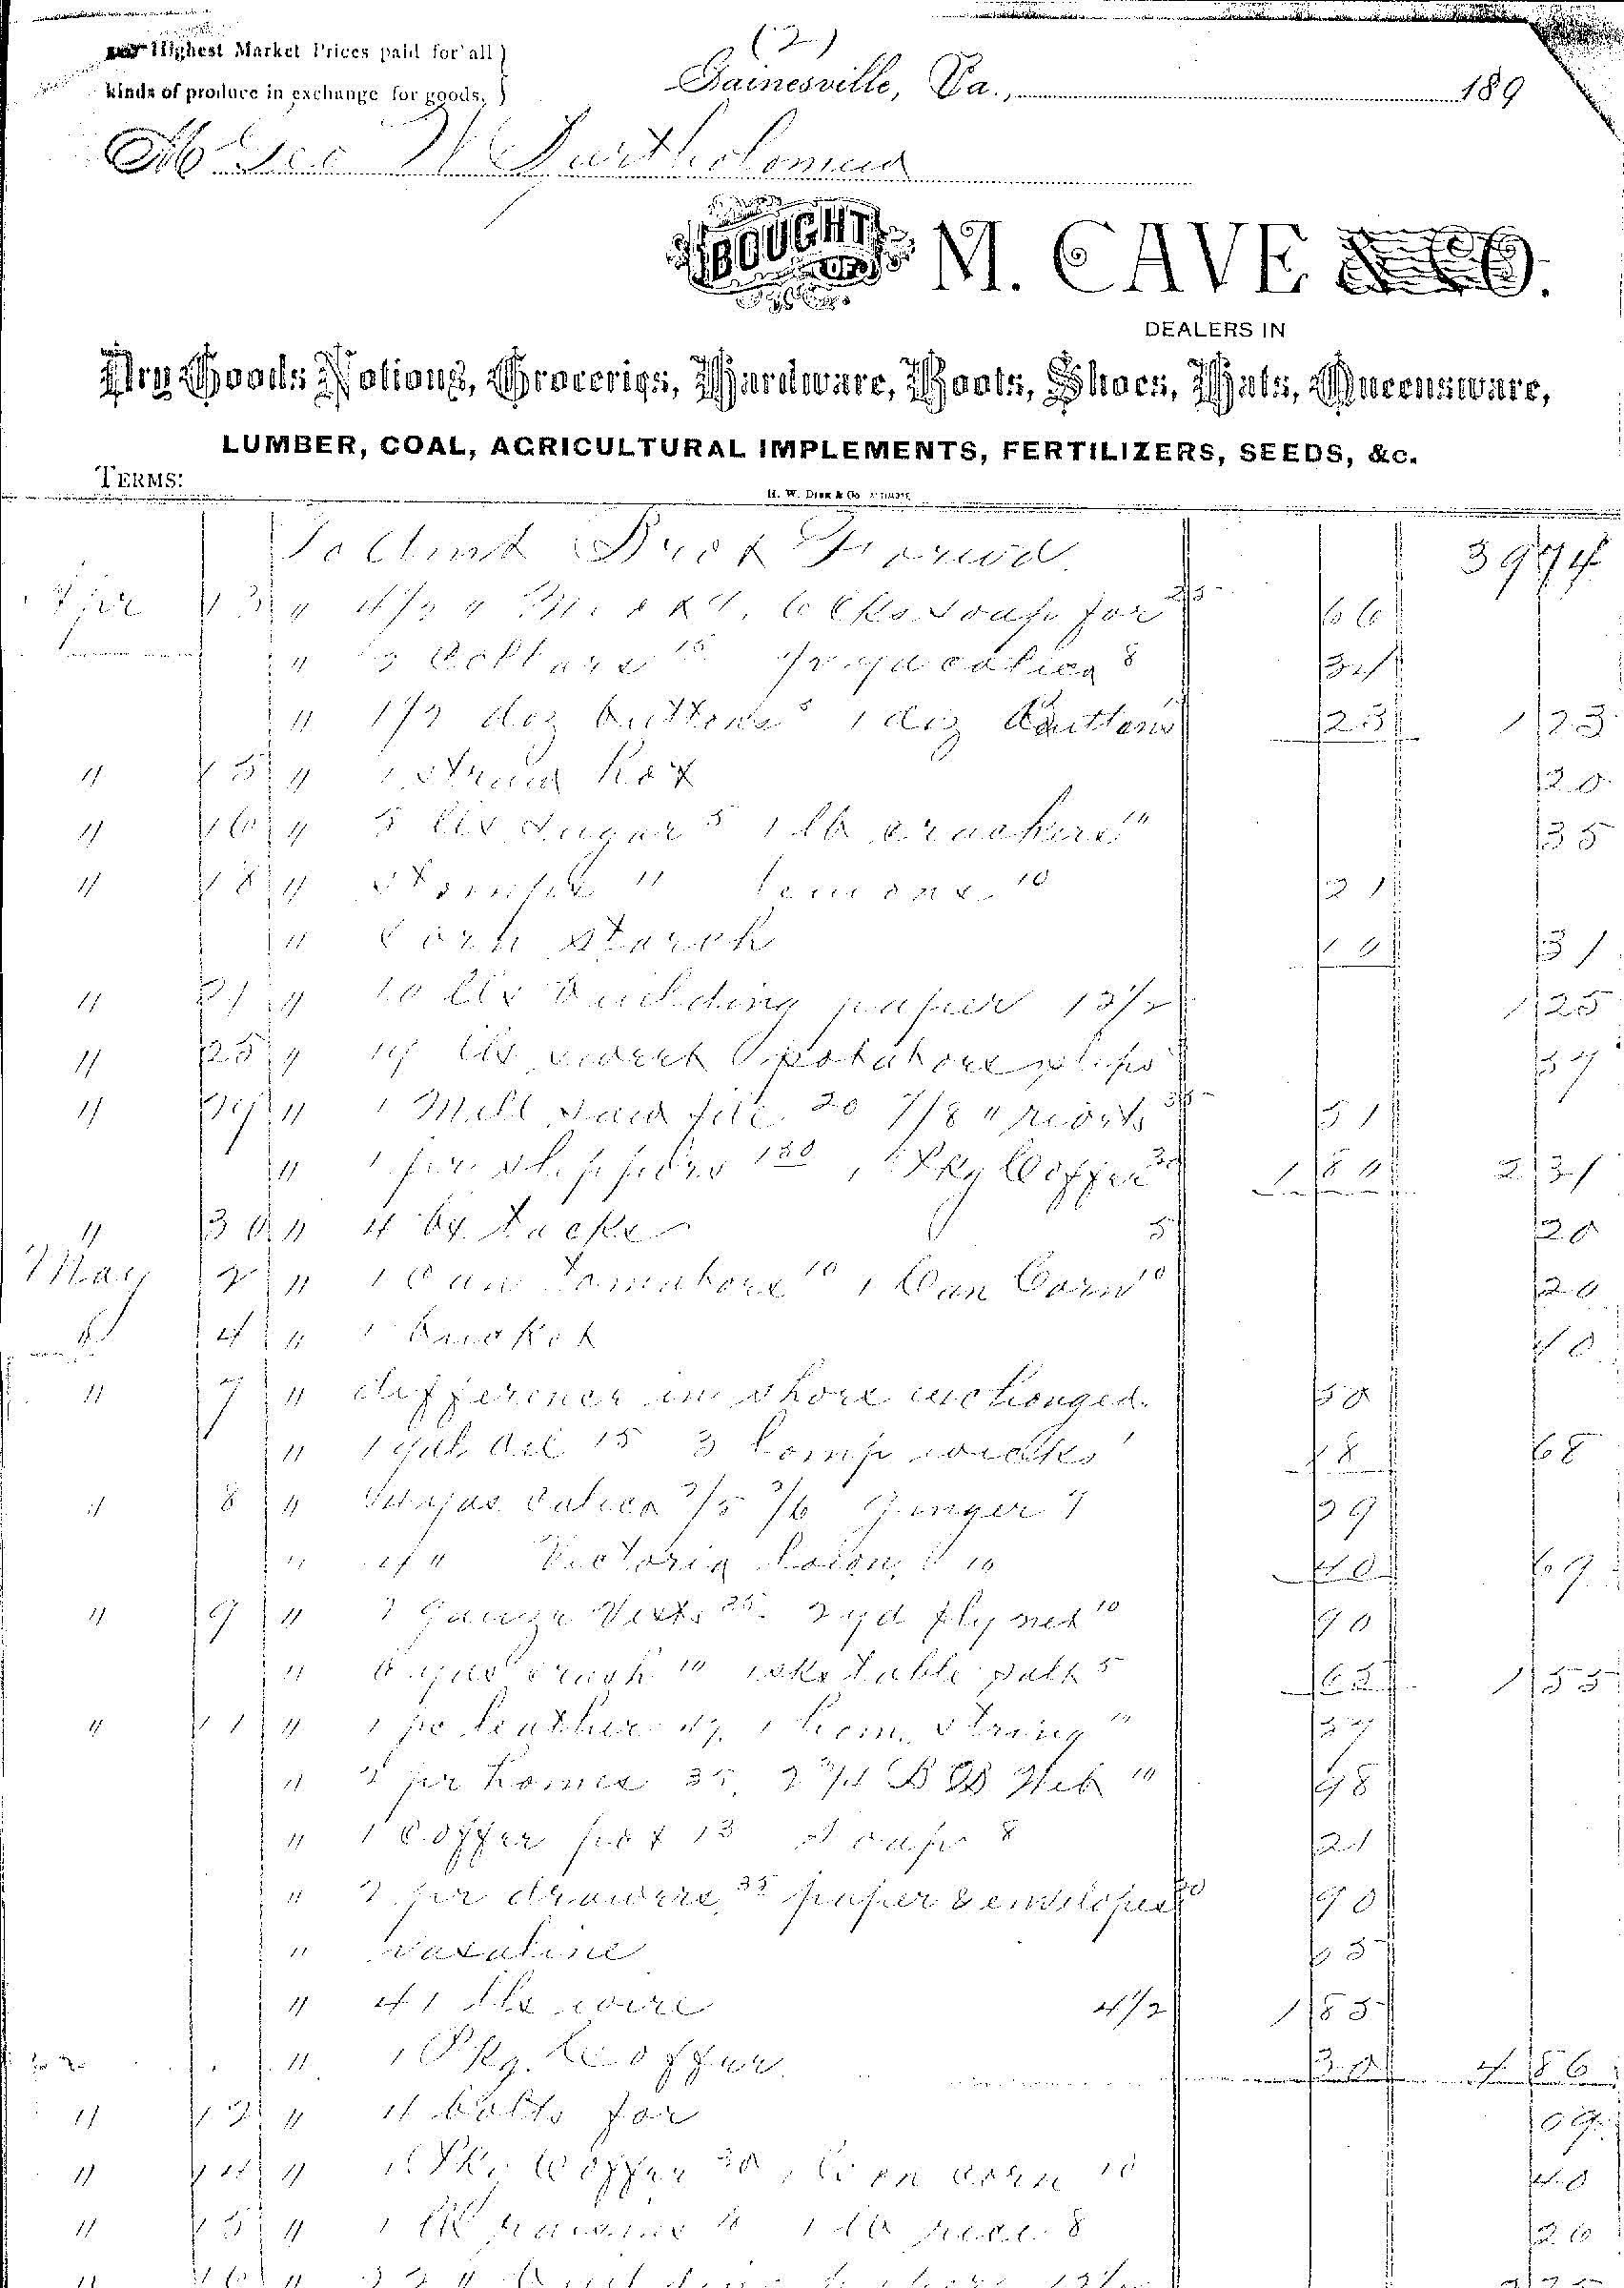 (2)
Highest Market Prices paid for all
kinds of produce in exchange for goods.
Gainesville, Va., 189
M Geo W Bartholomew
BOUGHT OF M. CAVE & CO.
DEALERS IN
Dry Goods Notions, Groceries, Hardware, Boots, Shoes, Hats, Queensware,
LUMBER, COAL, AGRICULTURAL IMPLEMENTS, FERTILIZERS, SEEDS, &c.
TERMS:
To Amt Brot Forwd. 39 74
Apr 13 " 6 cks soap for 25 66
" 2 Collars 15 yd calico 8 34
" 1 1/2 doz buttons 1 doz Buttons 23 1 23
" 15 " 1 straw hat 20
" 16 " 5 lbs sugar 5 1 lb crackers 10 35
" 18 " Stamps 11 lemons 10 21
" Corn starch 10 31
" 21 " 10 lbs building paper 12 1/2 1 25
" 25 " lbs sweet potatoe slips 37
" " 1 Mill saw file 20 7/8 " rivets 51
" 1 pr slippers 1 50 1 Pkg Coffee 30 1 80 2 31
" 30 " 4 bx tacks 5 20
May 2 " 1 Can Tomatoes 10 1 Can Corn 10 20
" 4 " 1 bucket 40
" 7 " difference in shoes exchanged. 50
" 1 gal. Oil 15 3 lamp wicks 1 18 68
" 8 " yds Calico 2/5 2/6 Ginger 7 29
" 4 " Victoria Lawn 10 40 69
" 9 " 2 gauze Vests 35 2 yd fly net 10 90
" yds crash 10 1 sks table salt 5 65 1 55
" 11 " 1 pc leather 1 hame string 10 37
" 2 pr hames 35 2 3/4 Web 10 98
" 1 Coffee pot 13 soap 8 21
" 2 pr drawers 35 paper & envelopes 20 90
" Vasaline 05
" 41 lbs wire 4 1/2 1 85
" 1 Pkg. Coffee 30 4 86
" 12 " 11 bolts for 09
" 14 " 1 Pkg Coffee 30 1 can corn 10 40
" 15 " 1 lb 1 lb rice 8
" 16 "